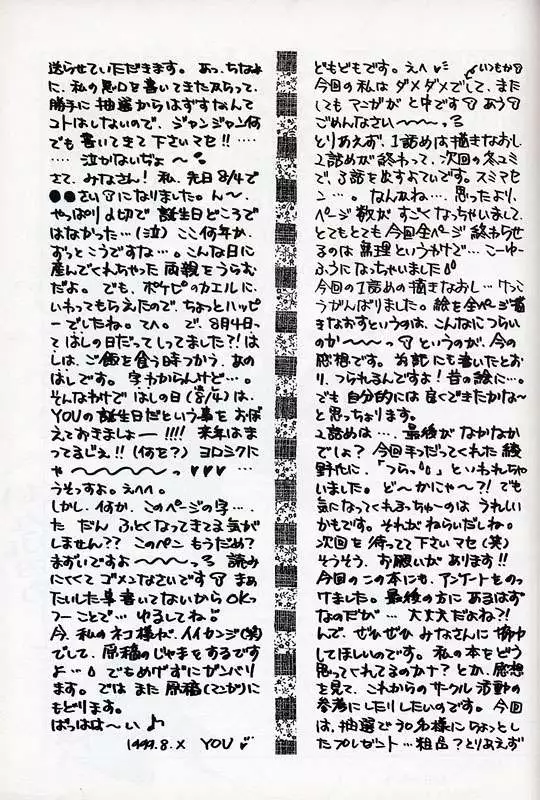 どもどもです。えへ いつもか
今回の私は ダメダメでして、また
しても マンガが と中です あう
ごめんなさい〜〜〜っ
とりあえず、1話めは描きなおし
2話めが終わって、次回の冬コミ
で、3話を出すよていです。スミマセ
ン…。なんかね…。思ったより、
ページ数が すごくなっちゃいまして、
とてもとても 今回全ページ 終わらせ
るのは 無理というわけで… こーゆー
ふうになっちゃいました
今回の1話めの描きなおし… けっこ
うがんばりました。絵を全ページ描
きなおすというのは、こんなにつらい
のか〜〜〜っ というのが、今の
感想です。前記にも書いたとお
り、つられるんですよ!昔の絵に…。
でも 自分的には 良くできたかな〜
と思っちょります。
2話めは…、最後がなかなか
でしょ? 今回手つだってくれた綾
野代に、「つらっ」といわれちゃ
いました。ど〜かにゃ〜?! でも
気になってくれるっちゅーのは うれしい
かもです。それが ねらいだしね。
次回を待ってて下さいマセ(笑)
そうそう、お願いが あります!!
今回の この本にも、アンケートをのっ
けました。最後の方に あるはず
なのだが… 大丈夫だよね?!
んで、ぜひぜひ みなさんに
してほしいのです。私の本をどう
思ってくれてるのかナ? とか、感想
を見て、これからのサークル活動の
参考にしたりしたいのです。今回
は、抽選で30名様にちょっとし
たプレゼント…粗品? とりあえず
送らせていただきます。あっ、ちなみ
に、私の悪口を書いてきたからって、
勝手に抽選からはずすなんて
コトはしないので、ジャンジャン何
でも 書いてきて下さいマセ!! ……
…… 泣かないぢょ〜
さて、みなさん! 私、先日8/4で
●●さいになりました。ん〜、
やっぱり〆切で 誕生日どころで
はなかった…(泣) ここ何年か、
ずっとこうですな…。こんな日に
産んでくれちゃった 両親をうらむ
だよ。でも、ポケピのカエルに、
いわってもらえたので、ちょっとハッピ
ーでしたね。てへ。で、8月4日っ
て はしの日だってしってました?! は
しは、ご飯を食う時つかう、あの
はしです。字わからんけど…。
そんなわけで はしの日(8/4)は、
YOUの誕生日だという事を おぼ
えておきましょー!!!! 来年はま
ってるじぇ!! (何を?) ヨロシクに
ゃ〜〜〜〜〜っ ♥♥♥…
うそっすよ。えへへ。
しかし、何か、このページの字…、
た だん ふとくなってきてる気が
しません?? このペン もうだめ?
まずいですよ〜〜〜っ 読み
にくくて ゴメンなさいです まぁ
たいした事書いてないからOKっ
つーことで… ゆるしてね
今、私のネコ様が、イイカンジ(笑)
でして、原稿のじゃまをするです
よ…。でもめげずにガンバリ
ます。では また 原稿(マンガ)に
もどります。
ばっはは〜い♪
1999.8.X YOU